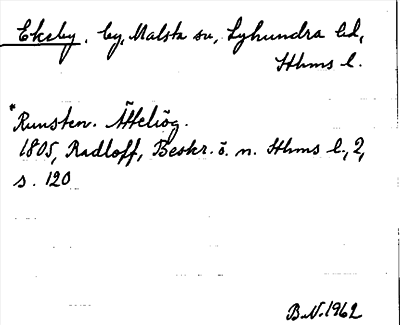 Ekeby, by, Malsta sn, Lyhundra hd,
Sthms l.
*Runsten. Ättehög.
1805, Radloff, Beskr. ö. n. Sthms l., 2,
s. 120
B.N. 1962